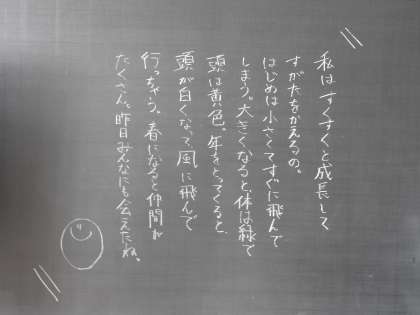 私はすくすくと成長して
すがたをかえるの。
はじめは小さくてすぐに飛んで
しまう。大きくなると体は緑で
頭は黄色。年をとってくると、
頭が白くなって、風に飛んで
行っちゃう。春になると仲間が
たくさん。昨日みんなにも会えたね。